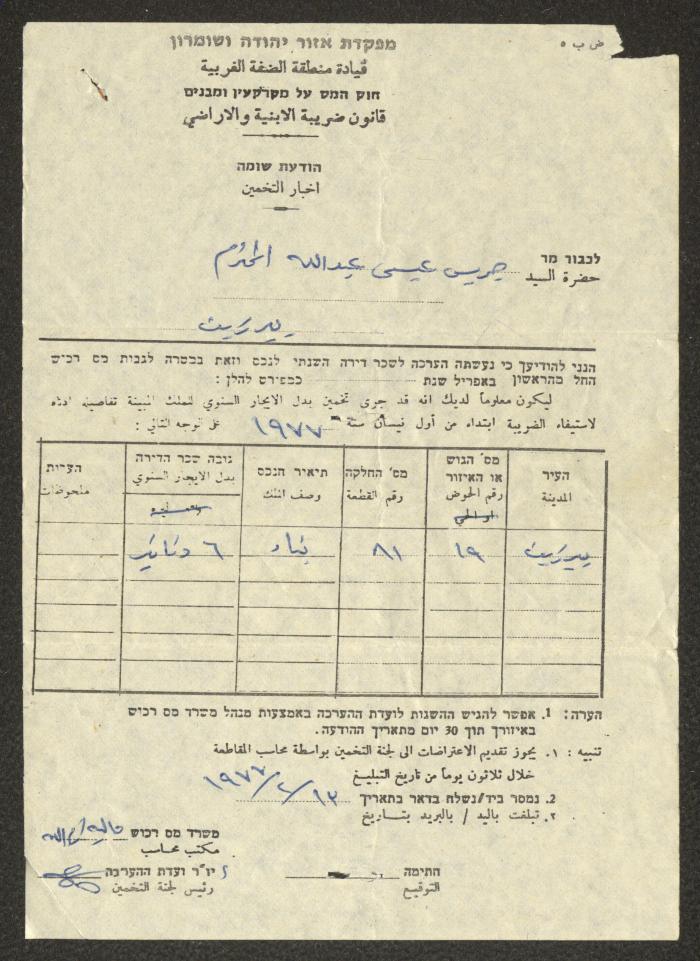 ض ب ٥
מפקדת אזור יהודה ושומרון
قيادة منطقة الضفة الغربية
חוק המס על מקרקעין ומבנים
قانون ضريبة الابنية والاراضي
הודעת שומה
اخبار التخمين
לכבוד מר
حضرة السيد جريس عيسى عبدالله المحترم
بيرزيت
הנני להודיעך כי נעשתה הערכה לשכר דירה השנתי לנכס וזאת במטרה לגבות מס רכוש
החל מהראשון באפריל שנת כמפורט להלן :
ليكون معلوماً لديك انه قد جرى تخمين بدل الايجار السنوي للملك المبينة تفاصيله ادناه
لاستيفاء الضريبة ابتداء من أول نيسان سنة ١٩٧٧ على الوجه التالي :
העיר מס' הגוש או האיזור מס' החלקה תיאור הנכס גובה שכר הדירה הערות
المدينة رقم الحوض او الحي رقم القطعة وصف الملك بدل الايجار السنوي ملحوظات
بيرزيت ١٩ ٨١ بناء ٦ دنانير
הערה : 1. אפשר להגיש השגות לועדת ההערכה באמצעות מנהל משרד מס רכוש
באיזורך תוך 30 יום מתאריך ההודעה.
تنبيه : ١. يجوز تقديم الاعتراضات الى لجنة التخمين بواسطة محاسب المقاطعة
خلال ثلاثون يوماً من تاريخ التبليغ
2. נמסר ביד/נשלח בדאר בתאריך ١٩٧٧/٢/١٣
٢. تبلغت باليد / بالبريد بتاريخ
משרד מס רכוש
مكتب محاسب
חתימה
التوقيع
יו"ר ועדת ההערכה
رئيس لجنة التخمين